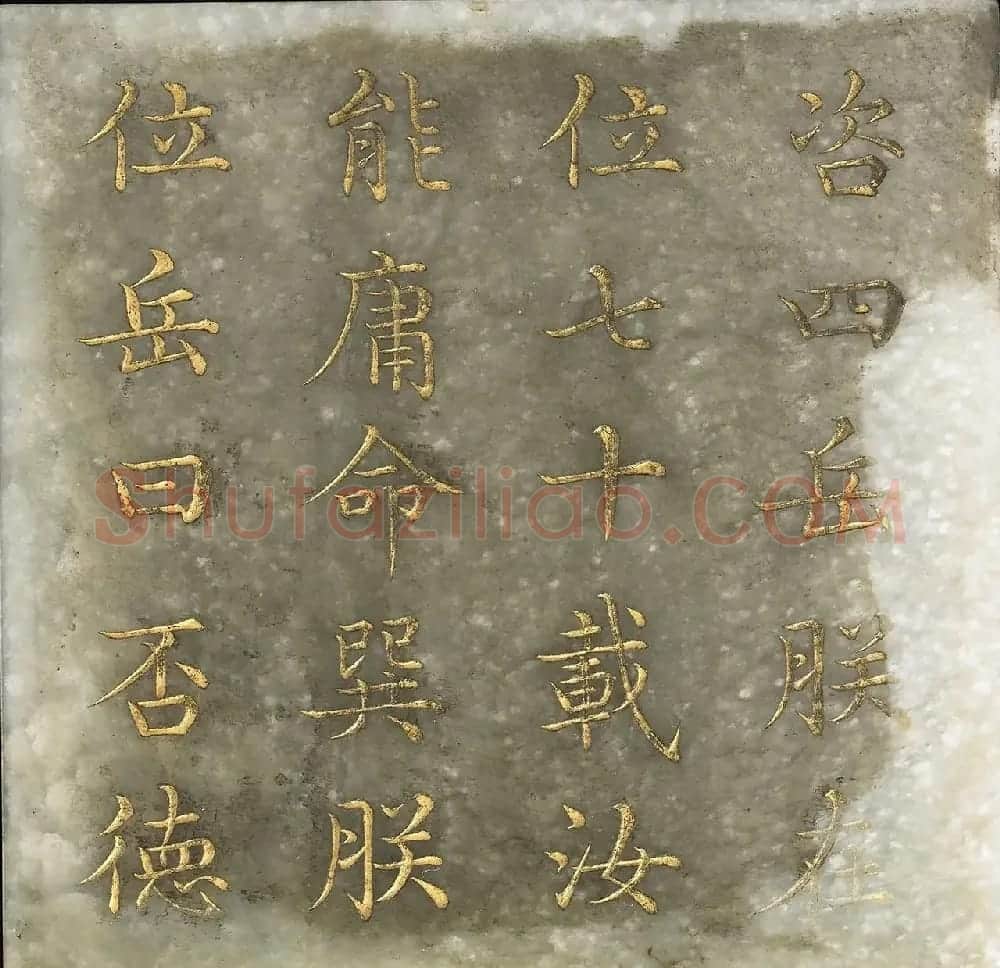 咨四岳朕在
位七十載汝
能庸命巽朕
位岳曰否德
Shufaziliao.COM